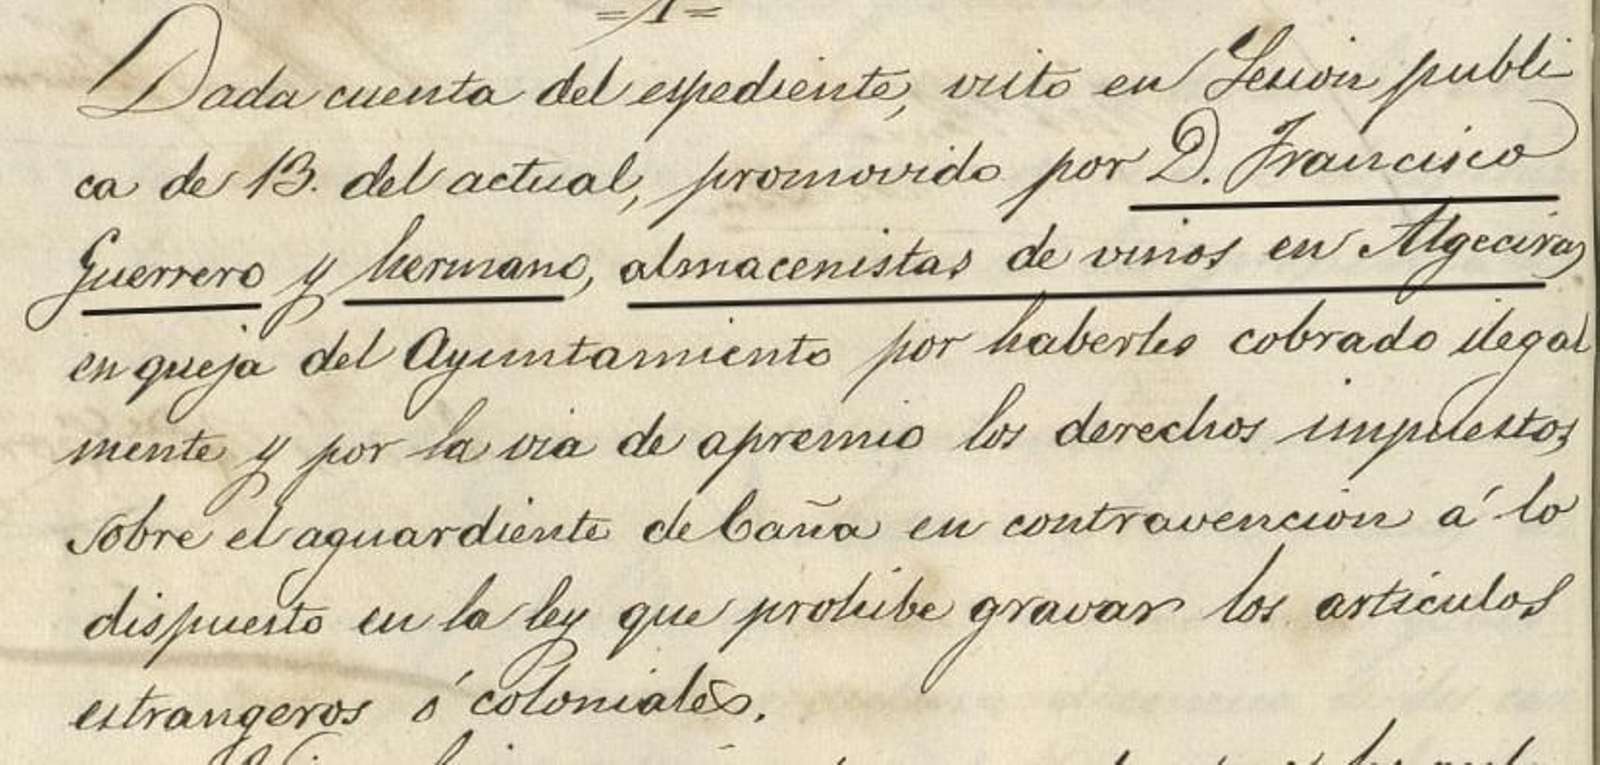 =1=
Dada cuenta del espediente, visto en Sesion publi
ca de 13. del actual, promovido por D. Francisco
Guerrero y hermano, almacenistas de vinos en Algeciras
en queja del Ayuntamiento por haberles cobrado ilegal
mente y por la via de apremio los derechos impuestos
sobre el aguardiente de Caña en contravencion á lo
dispuesto en la ley que prohibe gravar los articulos
estrangeros ó coloniales.